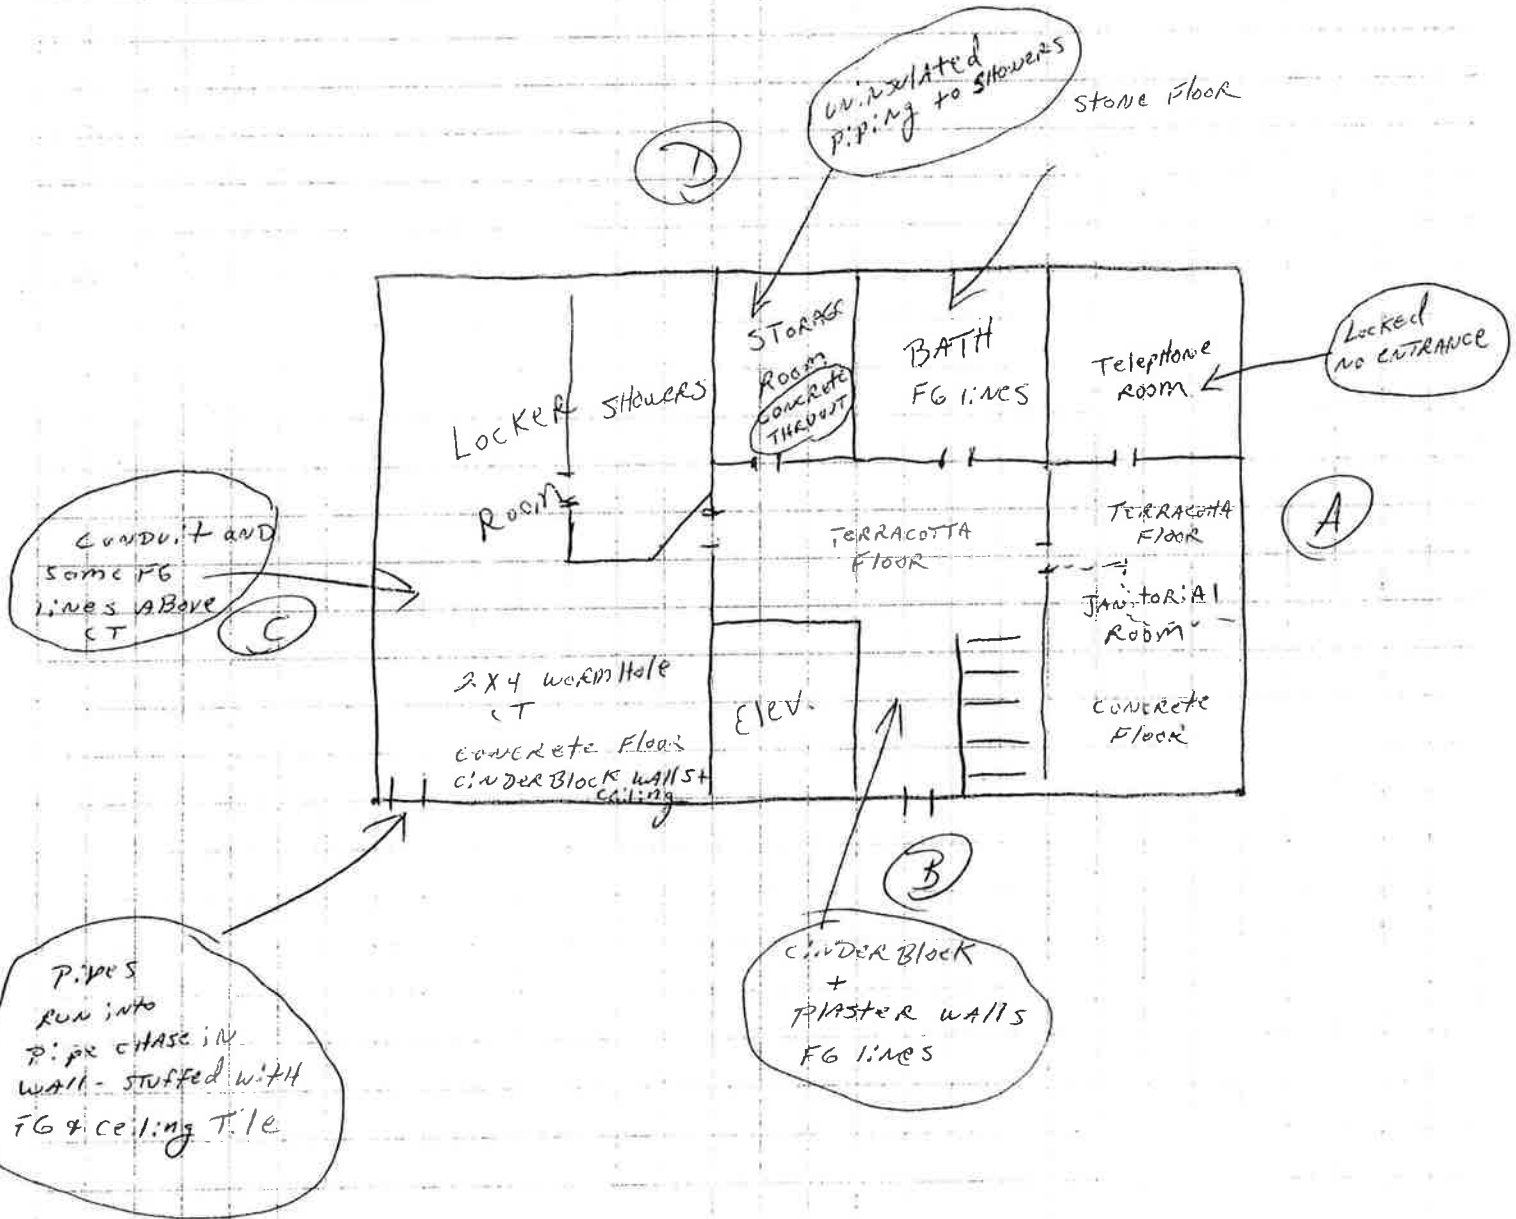 UNINSULATED
PIPING to SHOWERS
STONE FLOOR
D
STORAGE
ROOM
CONCRETE
THRUOUT
BATH
FG LINES
TelepHONE
ROOM
LOCKED
NO ENTRANCE
LOCKER
ROOM
SHOWERS
CONDUIT AND
Some FG
LINES ABOVE
CT
C
TERRACOTTA
FLOOR
TERRACOTTA
FLOOR
A
JANITORIAL
ROOM
CONCRETE
FLOOR
2 X 4 WORMHOLE
CT
CONCRETE FLOOR
CINDERBLOCK WALLS +
CEILING
Elev.
B
CINDERBLOCK
+
PLASTER WALLS
FG LINES
PIPES
RUN INTO
PIPE CHASE IN
WALL - STUFFED WITH
FG & CEILING TILE